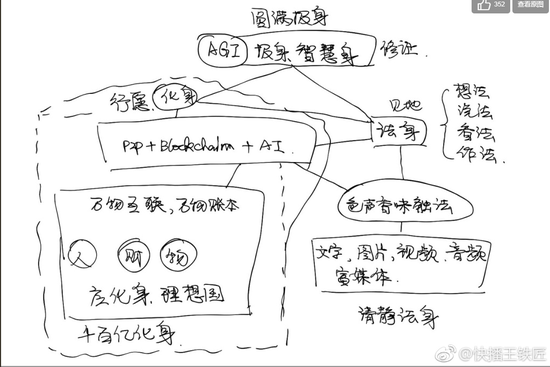 352
查看原图
圆满报身
AGI 报身 智慧身 修证
行愿 化身
见地
法身
想法
说法
看法
作法
P2P + Blockchain + AI
万物互联,万物账本
人 财 物
应化身,理想国
千百亿化身
色声香味触法
文字,图片,视频,音频
富媒体
清静法身
@快播王铁匠